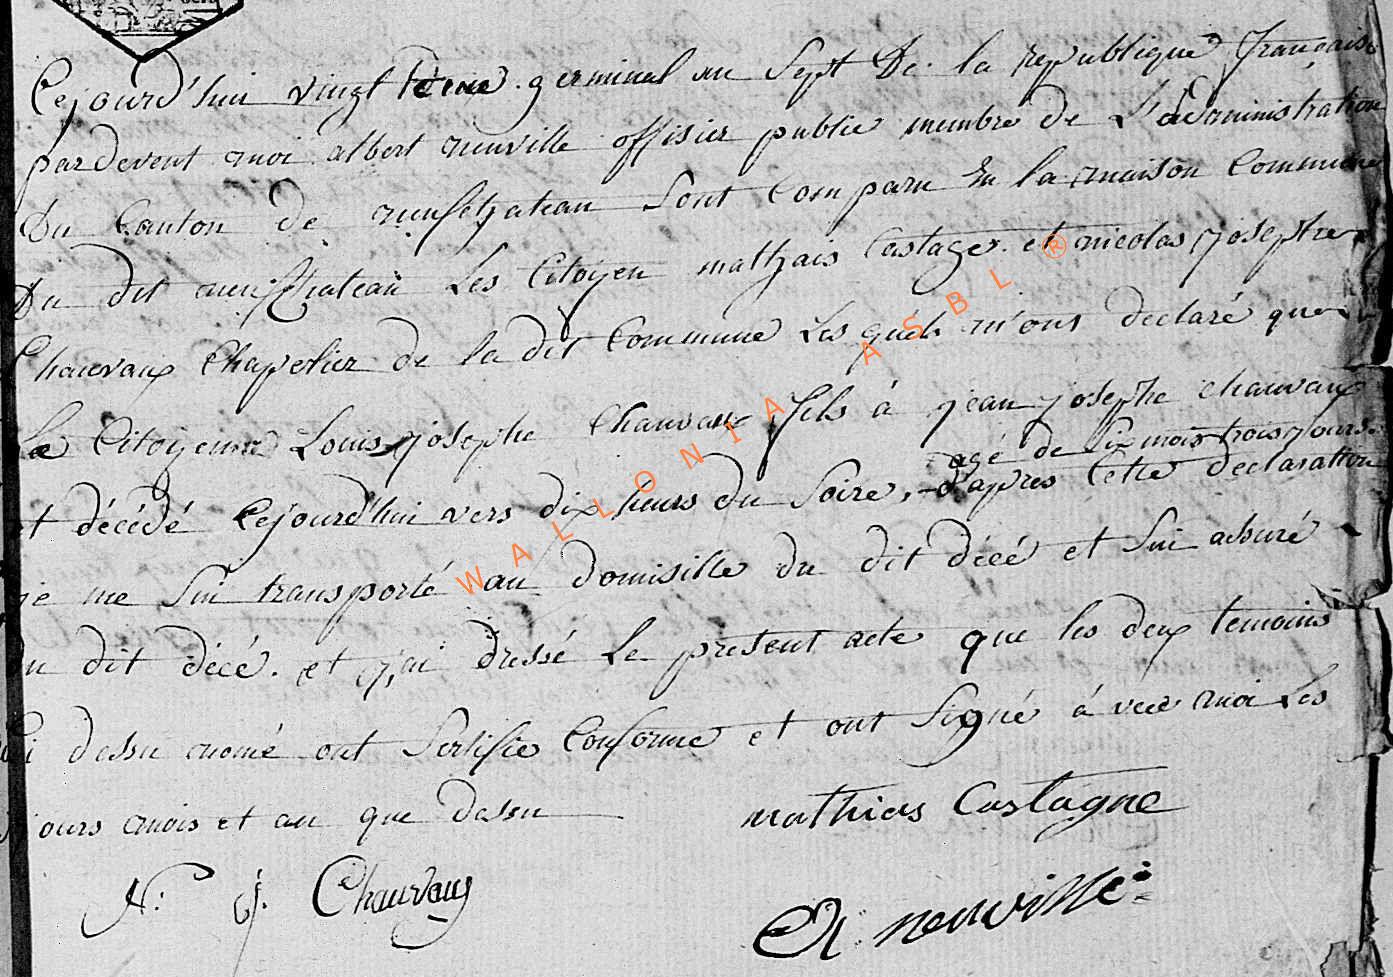 Cejourd'hui vingt deux germinal an sept De la republique française
pardevent moi albert neuville offisier publie membre de L'administration
Du Canton de neufchateau sont comparu En la maison Commune
Du dit neufchateau Les Citoyen mathais Castage et nicolas josephe
Chauvaux Chapelier de la dit Commune Les quels m'ont declaré que
Le Citoyenne Louis josephe Chauvaux fils à jean josephe chauvaux
agé de six mois trois jours
et décédé Cejourd'hui vers dix heurs du soire, d'apres Cette declaration
je me sui transporté au domisille du dit décé et sui assuré
du dit décé. et j'ai dressé Le present acte que les deux temoins
Ci dessu nomé ont sertifie Conforme et ont signé à vece moi Les
jours mois et an que dessu
mathias Castagne
N: j. Chauvaux
A: neuville
WALLONIA ASBL ®